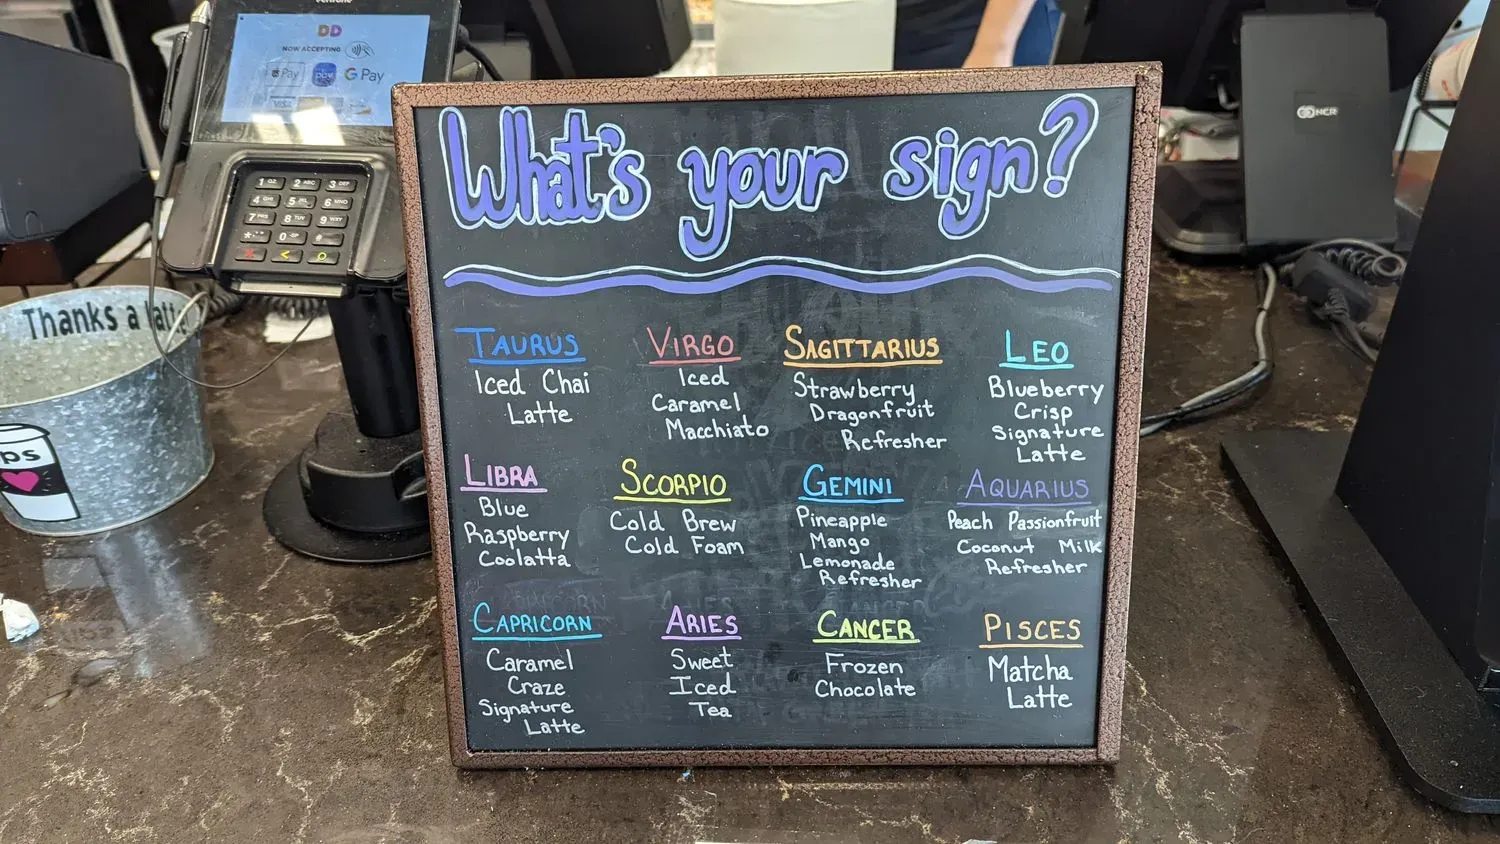 verifone
DD
NOW ACCEPTING
Pay
pay
G Pay
VISA
1 QZ 2 ABC 3 DEF
4 GHI 5 JKL 6 MNO
7 PRS 8 TUV 9 WXY
0
Thanks a latte
PS
NCR
What's your sign?
TAURUS
Iced Chai
Latte
VIRGO
Iced
Caramel
Macchiato
SAGITTARIUS
Strawberry
Dragonfruit
Refresher
LEO
Blueberry
Crisp
Signature
Latte
LIBRA
Blue
Raspberry
Coolatta
SCORPIO
Cold Brew
Cold Foam
GEMINI
Pineapple
Mango
Lemonade
Refresher
AQUARIUS
Peach Passionfruit
Coconut Milk
Refresher
CAPRICORN
Caramel
Craze
Signature
Latte
ARIES
Sweet
Iced
Tea
CANCER
Frozen
Chocolate
PISCES
Matcha
Latte